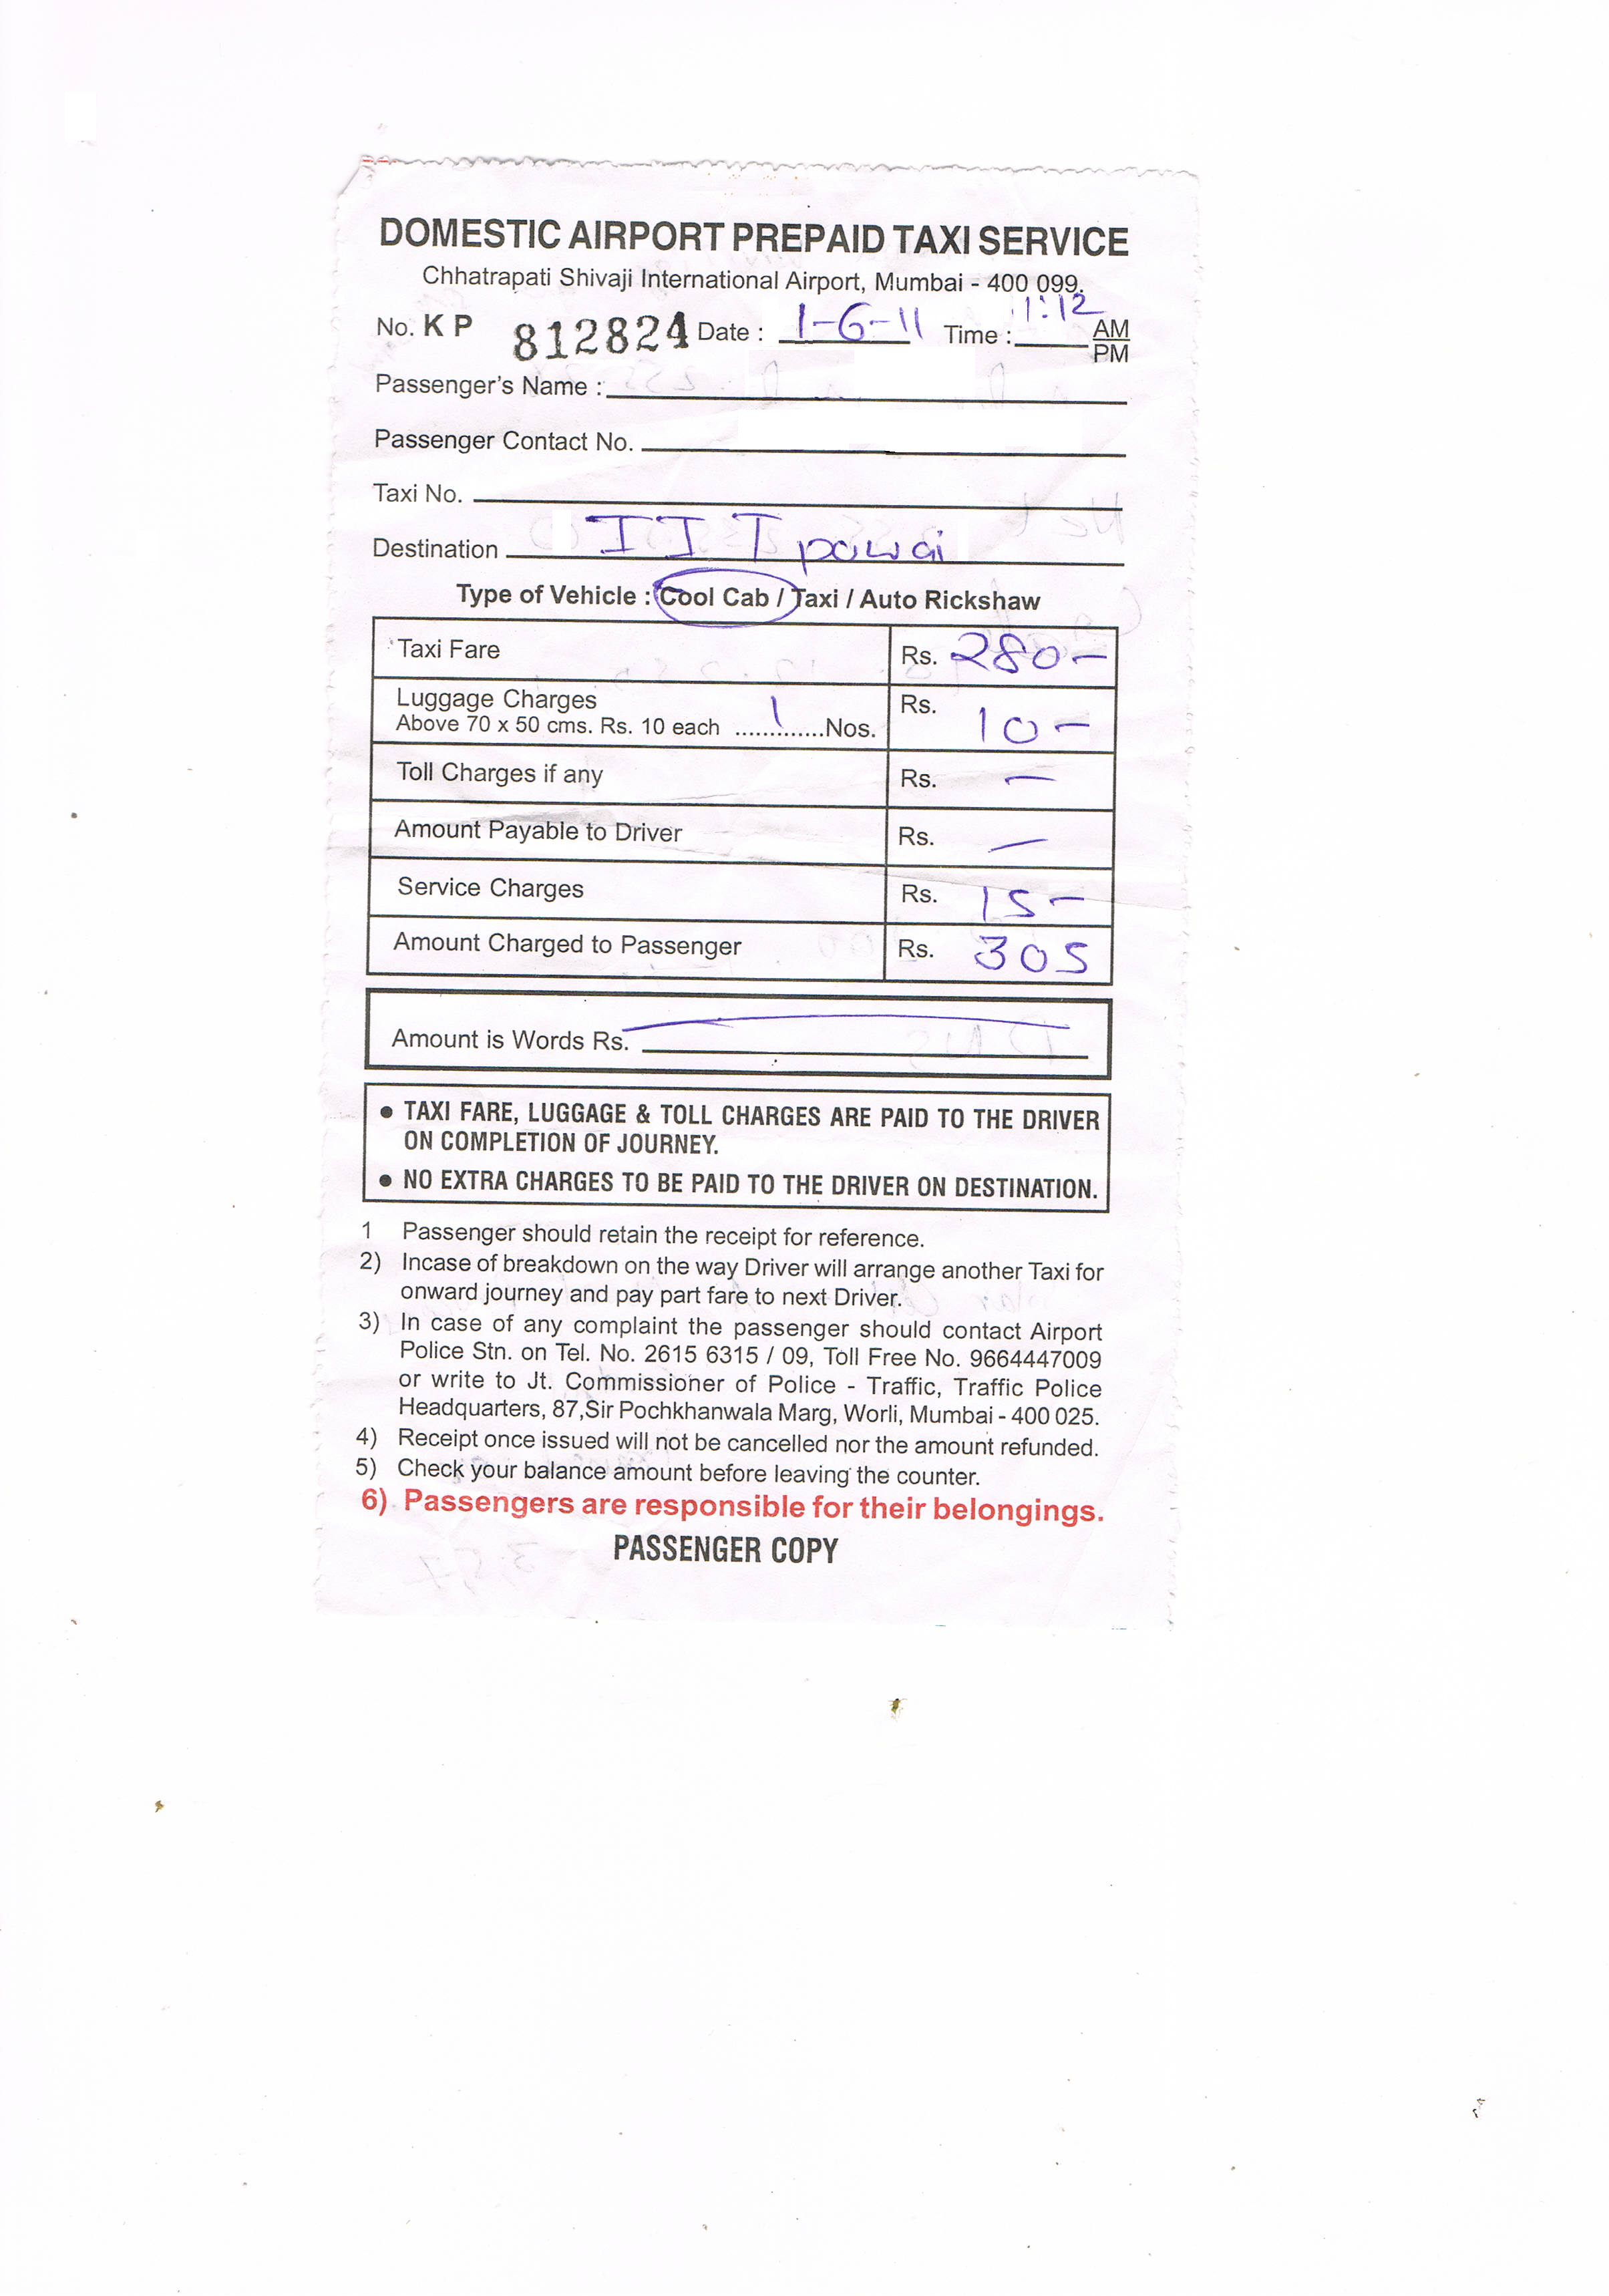 DOMESTIC AIRPORT PREPAID TAXI SERVICE
Chhatrapati Shivaji International Airport, Mumbai - 400 099.
No. K P 812824 Date : 1-6-11 Time : 1:12 AM PM
Passenger's Name :
Passenger Contact No.
Taxi No.
Destination IIT powai
Type of Vehicle : Cool Cab / Taxi / Auto Rickshaw
Taxi Fare Rs. 280-
Luggage Charges Rs. 10-
Above 70 x 50 cms. Rs. 10 each .............1 Nos.
Toll Charges if any Rs. -
Amount Payable to Driver Rs. -
Service Charges Rs. 15-
Amount Charged to Passenger Rs. 305
Amount is Words Rs.
• TAXI FARE, LUGGAGE & TOLL CHARGES ARE PAID TO THE DRIVER
ON COMPLETION OF JOURNEY.
• NO EXTRA CHARGES TO BE PAID TO THE DRIVER ON DESTINATION.
1 Passenger should retain the receipt for reference.
2) Incase of breakdown on the way Driver will arrange another Taxi for
onward journey and pay part fare to next Driver.
3) In case of any complaint the passenger should contact Airport
Police Stn. on Tel. No. 2615 6315 / 09, Toll Free No. 9664447009
or write to Jt. Commissioner of Police - Traffic, Traffic Police
Headquarters, 87,Sir Pochkhanwala Marg, Worli, Mumbai - 400 025.
4) Receipt once issued will not be cancelled nor the amount refunded.
5) Check your balance amount before leaving the counter.
6) Passengers are responsible for their belongings.
PASSENGER COPY